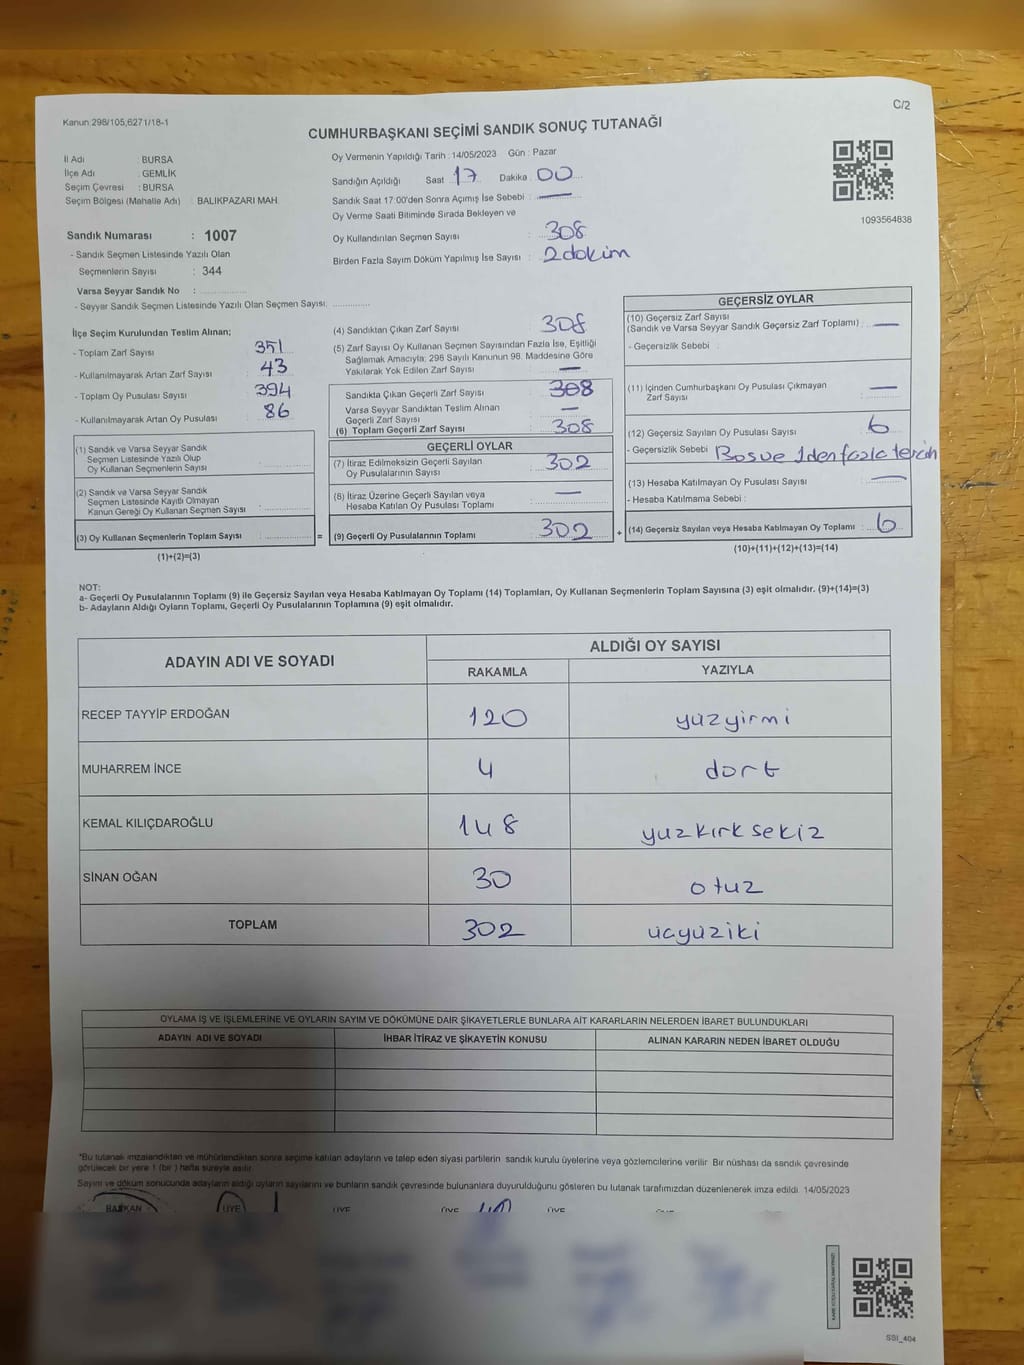 C/2
Kanun:298/105,6271/18-1
CUMHURBAŞKANI SEÇİMİ SANDIK SONUÇ TUTANAĞI
İl Adı BURSA
İlçe Adı : GEMLİK
Seçim Çevresi : BURSA
Seçim Bölgesi (Mahalle Adı) : BALIKPAZARI MAH.
Sandık Numarası : 1007
- Sandık Seçmen Listesinde Yazılı Olan
Seçmenlerin Sayısı : 344
Varsa Seyyar Sandık No :
- Seyyar Sandık Seçmen Listesinde Yazılı Olan Seçmen Sayısı:
Oy Vermenin Yapıldığı Tarih : 14/05/2023 Gün : Pazar
Sandığın Açıldığı Saat 17 Dakika 00
Sandık Saat 17:00'den Sonra Açımış İse Sebebi : —
Oy Verme Saati Bitiminde Sırada Bekleyen ve
Oy Kullandırılan Seçmen Sayısı : 308
Birden Fazla Sayım Döküm Yapılmış İse Sayısı : 2 dokim
1093564838
İlçe Seçim Kurulundan Teslim Alınan;
- Toplam Zarf Sayısı : 351
- Kullanılmayarak Artan Zarf Sayısı : 43
- Toplam Oy Pusulası Sayısı : 394
- Kullanılmayarak Artan Oy Pusulası : 86
(1) Sandık ve Varsa Seyyar Sandık
Seçmen Listesinde Yazılı Olup
Oy Kullanan Seçmenlerin Sayısı :
(2) Sandık ve Varsa Seyyar Sandık
Seçmen Listesinde Kayıtlı Olmayan
Kanun Gereği Oy Kullanan Seçmen Sayısı :
(3) Oy Kullanan Seçmenlerin Toplam Sayısı : =
(1)+(2)=(3)
(4) Sandıktan Çıkan Zarf Sayısı : 308
(5) Zarf Sayısı Oy Kullanan Seçmen Sayısından Fazla İse, Eşitliği
Sağlamak Amacıyla; 298 Sayılı Kanunun 98. Maddesine Göre
Yakılarak Yok Edilen Zarf Sayısı : —
Sandıkta Çıkan Geçerli Zarf Sayısı : 308
Varsa Seyyar Sandıktan Teslim Alınan
Geçerli Zarf Sayısı : —
(6) Toplam Geçerli Zarf Sayısı : 308
GEÇERLİ OYLAR
(7) İtiraz Edilmeksizin Geçerli Sayılan
Oy Pusulalarının Sayısı : 302
(8) İtiraz Üzerine Geçerli Sayılan veya
Hesaba Katılan Oy Pusulası Toplamı : —
(9) Geçerli Oy Pusulalarının Toplamı : 302 +
GEÇERSİZ OYLAR
(10) Geçersiz Zarf Sayısı
(Sandık ve Varsa Seyyar Sandık Geçersiz Zarf Toplamı) : —
- Geçersizlik Sebebi :
(11) İçinden Cumhurbaşkanı Oy Pusulası Çıkmayan
Zarf Sayısı : —
(12) Geçersiz Sayılan Oy Pusulası Sayısı : 6
- Geçersizlik Sebebi : Bosve 1den fazla tercih
(13) Hesaba Katılmayan Oy Pusulası Sayısı : —
- Hesaba Katılmama Sebebi :
(14) Geçersiz Sayılan veya Hesaba Katılmayan Oy Toplamı : 6
(10)+(11)+(12)+(13)=(14)
NOT:
a- Geçerli Oy Pusulalarının Toplamı (9) ile Geçersiz Sayılan veya Hesaba Katılmayan Oy Toplamı (14) Toplamları, Oy Kullanan Seçmenlerin Toplam Sayısına (3) eşit olmalıdır. (9)+(14)=(3)
b- Adayların Aldığı Oyların Toplamı, Geçerli Oy Pusulalarının Toplamına (9) eşit olmalıdır.
ADAYIN ADI VE SOYADI ALDIĞI OY SAYISI
RAKAMLA YAZIYLA
RECEP TAYYİP ERDOĞAN 120 yüzyirmi
MUHARREM İNCE 4 dort
KEMAL KILIÇDAROĞLU 148 yuzkırksekiz
SİNAN OĞAN 30 otuz
TOPLAM 302 ucyüziki
OYLAMA İŞ VE İŞLEMLERİNE VE OYLARIN SAYIM VE DÖKÜMÜNE DAİR ŞİKAYETLERLE BUNLARA AİT KARARLARIN NELERDEN İBARET BULUNDUKLARI
ADAYIN ADI VE SOYADI İHBAR İTİRAZ VE ŞİKAYETİN KONUSU ALINAN KARARIN NEDEN İBARET OLDUĞU
*Bu tutanak imzalandıktan ve mühürlendikten sonra seçime katılan adayların ve talep eden siyasi partilerin sandık kurulu üyelerine veya gözlemcilerine verilir. Bir nüshası da sandık çevresinde
görülecek bir yere 1 (bir) hafta süreyle asılır.
Sayım ve döküm sonucunda adayların aldığı oyların sayılarını ve bunların sandık çevresinde bulunanlara duyurulduğunu gösteren bu tutanak tarafımızdan düzenlenerek imza edildi. 14/05/2023
BAŞKAN ÜYE ÜYE ÜYE ÜYE
SSI_404